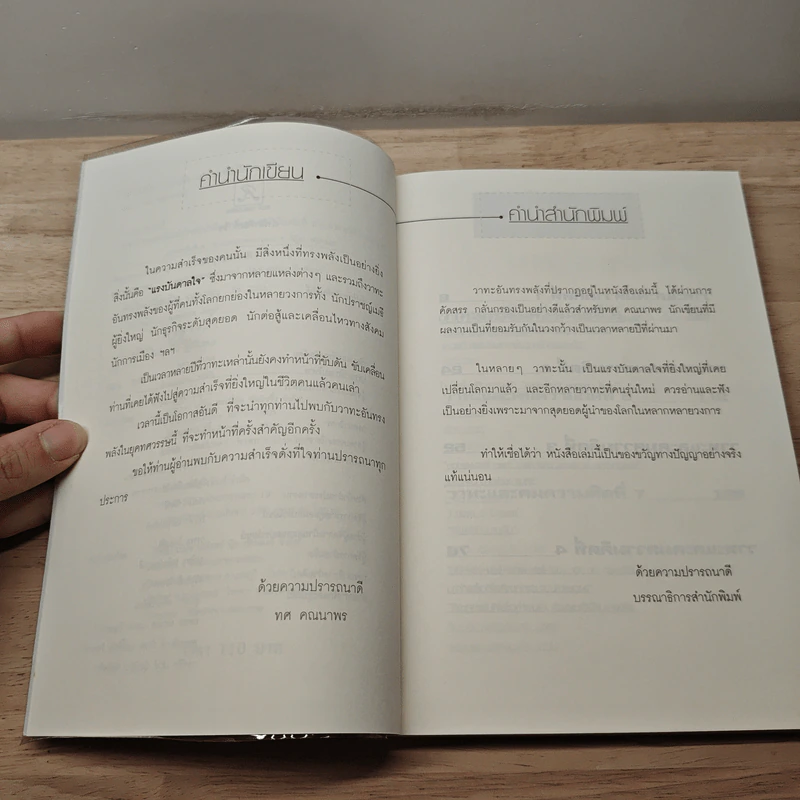 คำนำนักเขียน
ในความสำเร็จของคนนั้น มีสิ่งหนึ่งที่ทรงพลังเป็นอย่างยิ่ง
สิ่งนั้นคือ "แรงบันดาลใจ" ซึ่งมาจากหลายแหล่งต่างๆ และรวมถึงวาทะ
อันทรงพลังของผู้ที่คนทั้งโลกยกย่องในหลายวงการทั้ง นักปราชญ์เมธี
ผู้ยิ่งใหญ่ นักธุรกิจระดับสุดยอด นักต่อสู้และเคลื่อนไหวทางสังคม
นักการเมือง ฯลฯ
เป็นเวลาหลายปีที่วาทะเหล่านั้นยังคงทำหน้าที่ขับดัน ขับเคลื่อน
ท่านที่เคยได้ฟังไปสู่ความสำเร็จที่ยิ่งใหญ่ในชีวิตคนแล้วคนเล่า
เวลานี้เป็นโอกาสอันดี ที่จะนำทุกท่านไปพบกับวาทะอันทรง
พลังในยุคทศวรรษนี้ ที่จะทำหน้าที่ครั้งสำคัญอีกครั้ง
ขอให้ท่านผู้อ่านพบกับความสำเร็จดั่งที่ใจท่านปรารถนาทุก
ประการ
ด้วยความปรารถนาดี
ทศ คณนาพร
คำนำสำนักพิมพ์
วาทะอันทรงพลังที่ปรากฏอยู่ในหนังสือเล่มนี้ ได้ผ่านการ
คัดสรร กลั่นกรองเป็นอย่างดีแล้วสำหรับทศ คณนาพร นักเขียนที่มี
ผลงานเป็นที่ยอมรับกันในวงกว้างเป็นเวลาหลายปีที่ผ่านมา
ในหลายๆ วาทะนั้น เป็นแรงบันดาลใจที่ยิ่งใหญ่ที่เคย
เปลี่ยนโลกมาแล้ว และอีกหลายวาทะที่คนรุ่นใหม่ ควรอ่านและฟัง
เป็นอย่างยิ่งเพราะมาจากสุดยอดผู้นำของโลกในหลากหลายวงการ
ทำให้เชื่อได้ว่า หนังสือเล่มนี้เป็นของขวัญทางปัญญาอย่างจริง
แท้แน่นอน
ด้วยความปรารถนาดี
บรรณาธิการสำนักพิมพ์